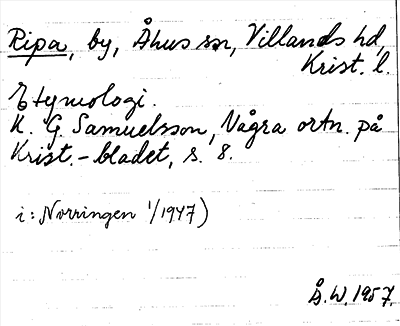 Ripa, by, Åhus sn, Villands hd,
Krist. l.
Etymologi.
K. G. Samuelsson, Några ortn. på
Krist.-bladet, s. 8.
i: Norringen 1/1947)
Å. W. 1957.